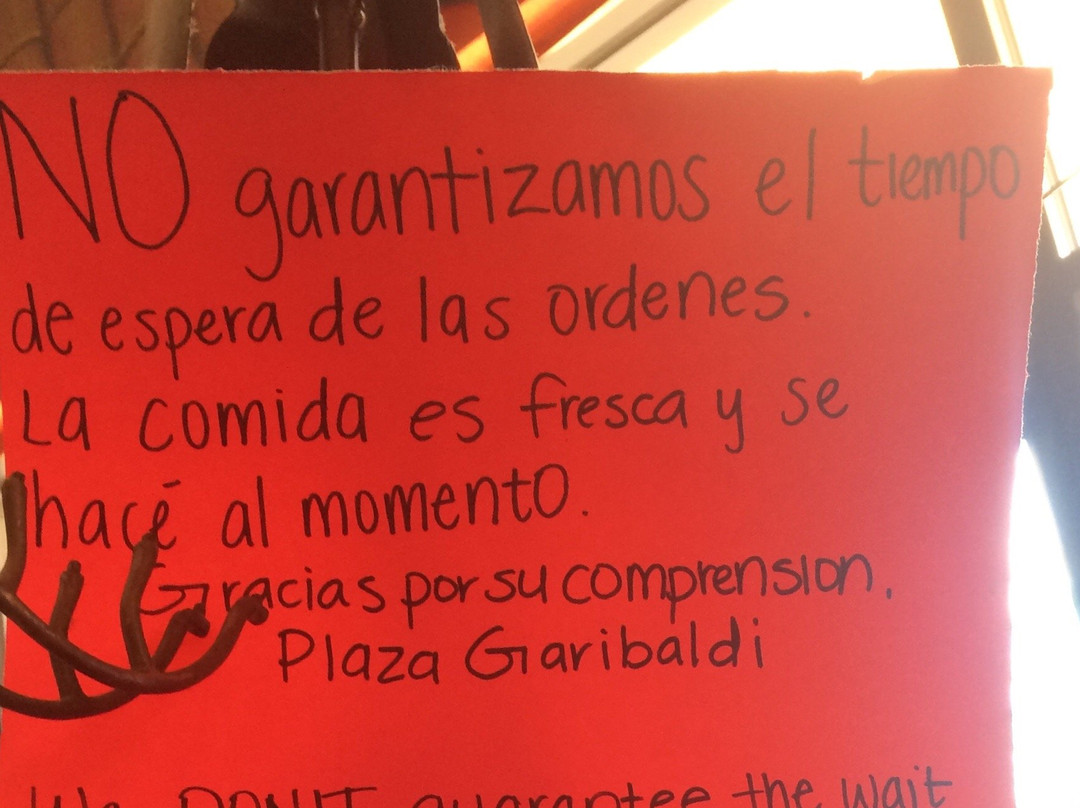 NO garantizamos el tiempo
de espera de las ordenes.
La comida es fresca y se
hacé al momento.
Gracias por su comprension.
Plaza Garibaldi
We DON'T guarantee the wait